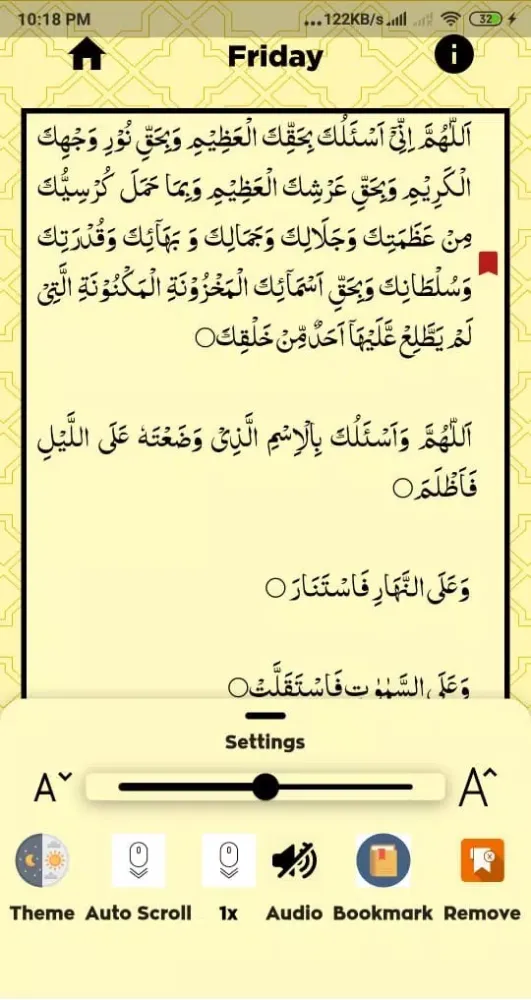 10:18 PM
...122KB/s
32
Friday
اَللّٰهُمَّ اِنِّیْۤ اَسْئَلُكَ بِحَقِّكَ الْعَظِیْمِ وَبِحَقِّ نُوْرِ وَجْهِكَ
الْكَرِیْمِ وَبِحَقِّ عَرْشِكَ الْعَظِیْمِ وَبِمَا حَمَلَ كُرْسِیُّكَ
مِنْ عَظَمَتِكَ وَجَلَالِكَ وَجَمَالِكَ وَ بَهَآئِكَ وَقُدْرَتِكَ
وَسُلْطَانِكَ وَبِحَقِّ اَسْمَآئِكَ الْمَخْزُوْنَةِ الْمَكْنُوْنَةِ الَّتِیْ
لَمْ یَطَّلِعْ عَّلَیْهَاۤ اَحَدٌ مِّنْ خَلْقِكَ○
اَللّٰهُمَّ وَاَسْئَلُكَ بِالْاِسْمِ الَّذِیْ وَضَعْتَهٗ عَلَی اللَّیْلِ
فَاَظْلَمَ○
وَعَلَی النَّهَارِ فَاسْتَنَارَ○
وَعَلَی السَّمٰوٰتِ فَاسْتَقَلَّتْ○
Settings
A A
Theme Auto Scroll 1x Audio Bookmark Remove